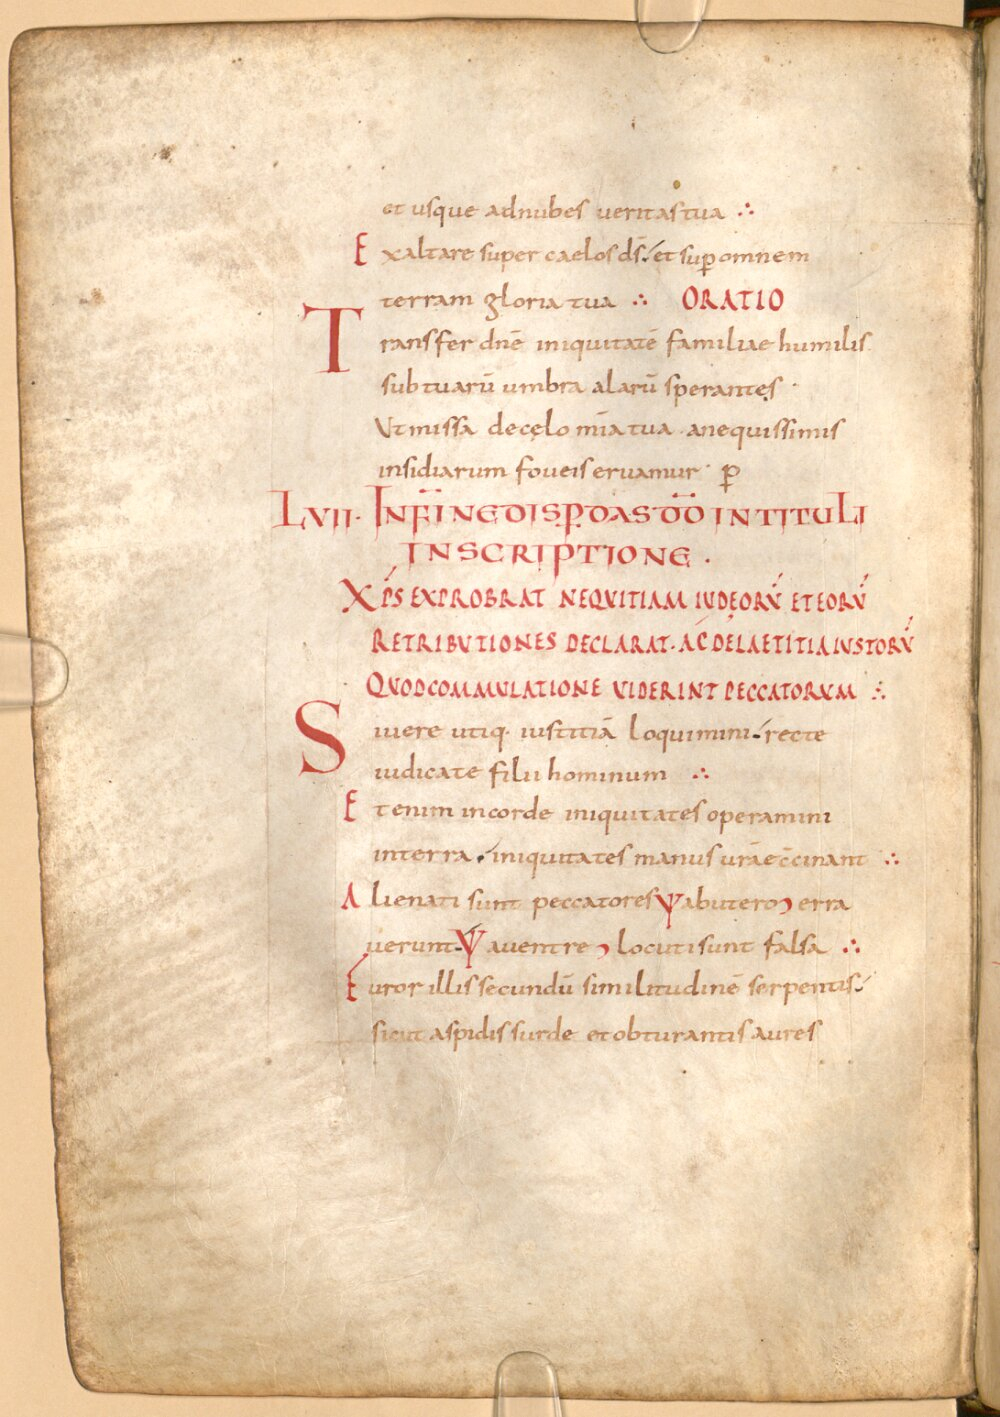 et usque adnubes veritastua ∴
Exaltare super caelos dš. et sup omnem
terram gloria tua ∴ ORATIO
Transfer dnē iniquitatē familiae humilis
subtuarū umbra alarū sperantes ·
Ut missa decęlo mīa tua · anequissimis
insidiarum foveis eruamur · p
LVII · IN FĪ NE DISP DAS DD IN TITULI
INSCRIPTIONE .
XPS EXPROBRAT NEQVITIAM IVDEORV̄ ET EORV̄
RETRIBVTIONES DECLARAT · AC DELAETITIA IVSTORV̄
QVOD COMMVLATIONE VIDERINT PECCATORVM ∴
Si vere utiq· iustitiā loquimini · recte
iudicate filii hominum ∴
Et enim incorde iniquitates operamini
interra · iniquitates manus urāe ccinant ∴
Alienati sunt peccatores Ψ abutero erra
verunt · Ψ aventre locuti sunt falsa ∴
Furor illis secundū similitudinē serpentis ·
sicut aspidis surde et obturantis aures